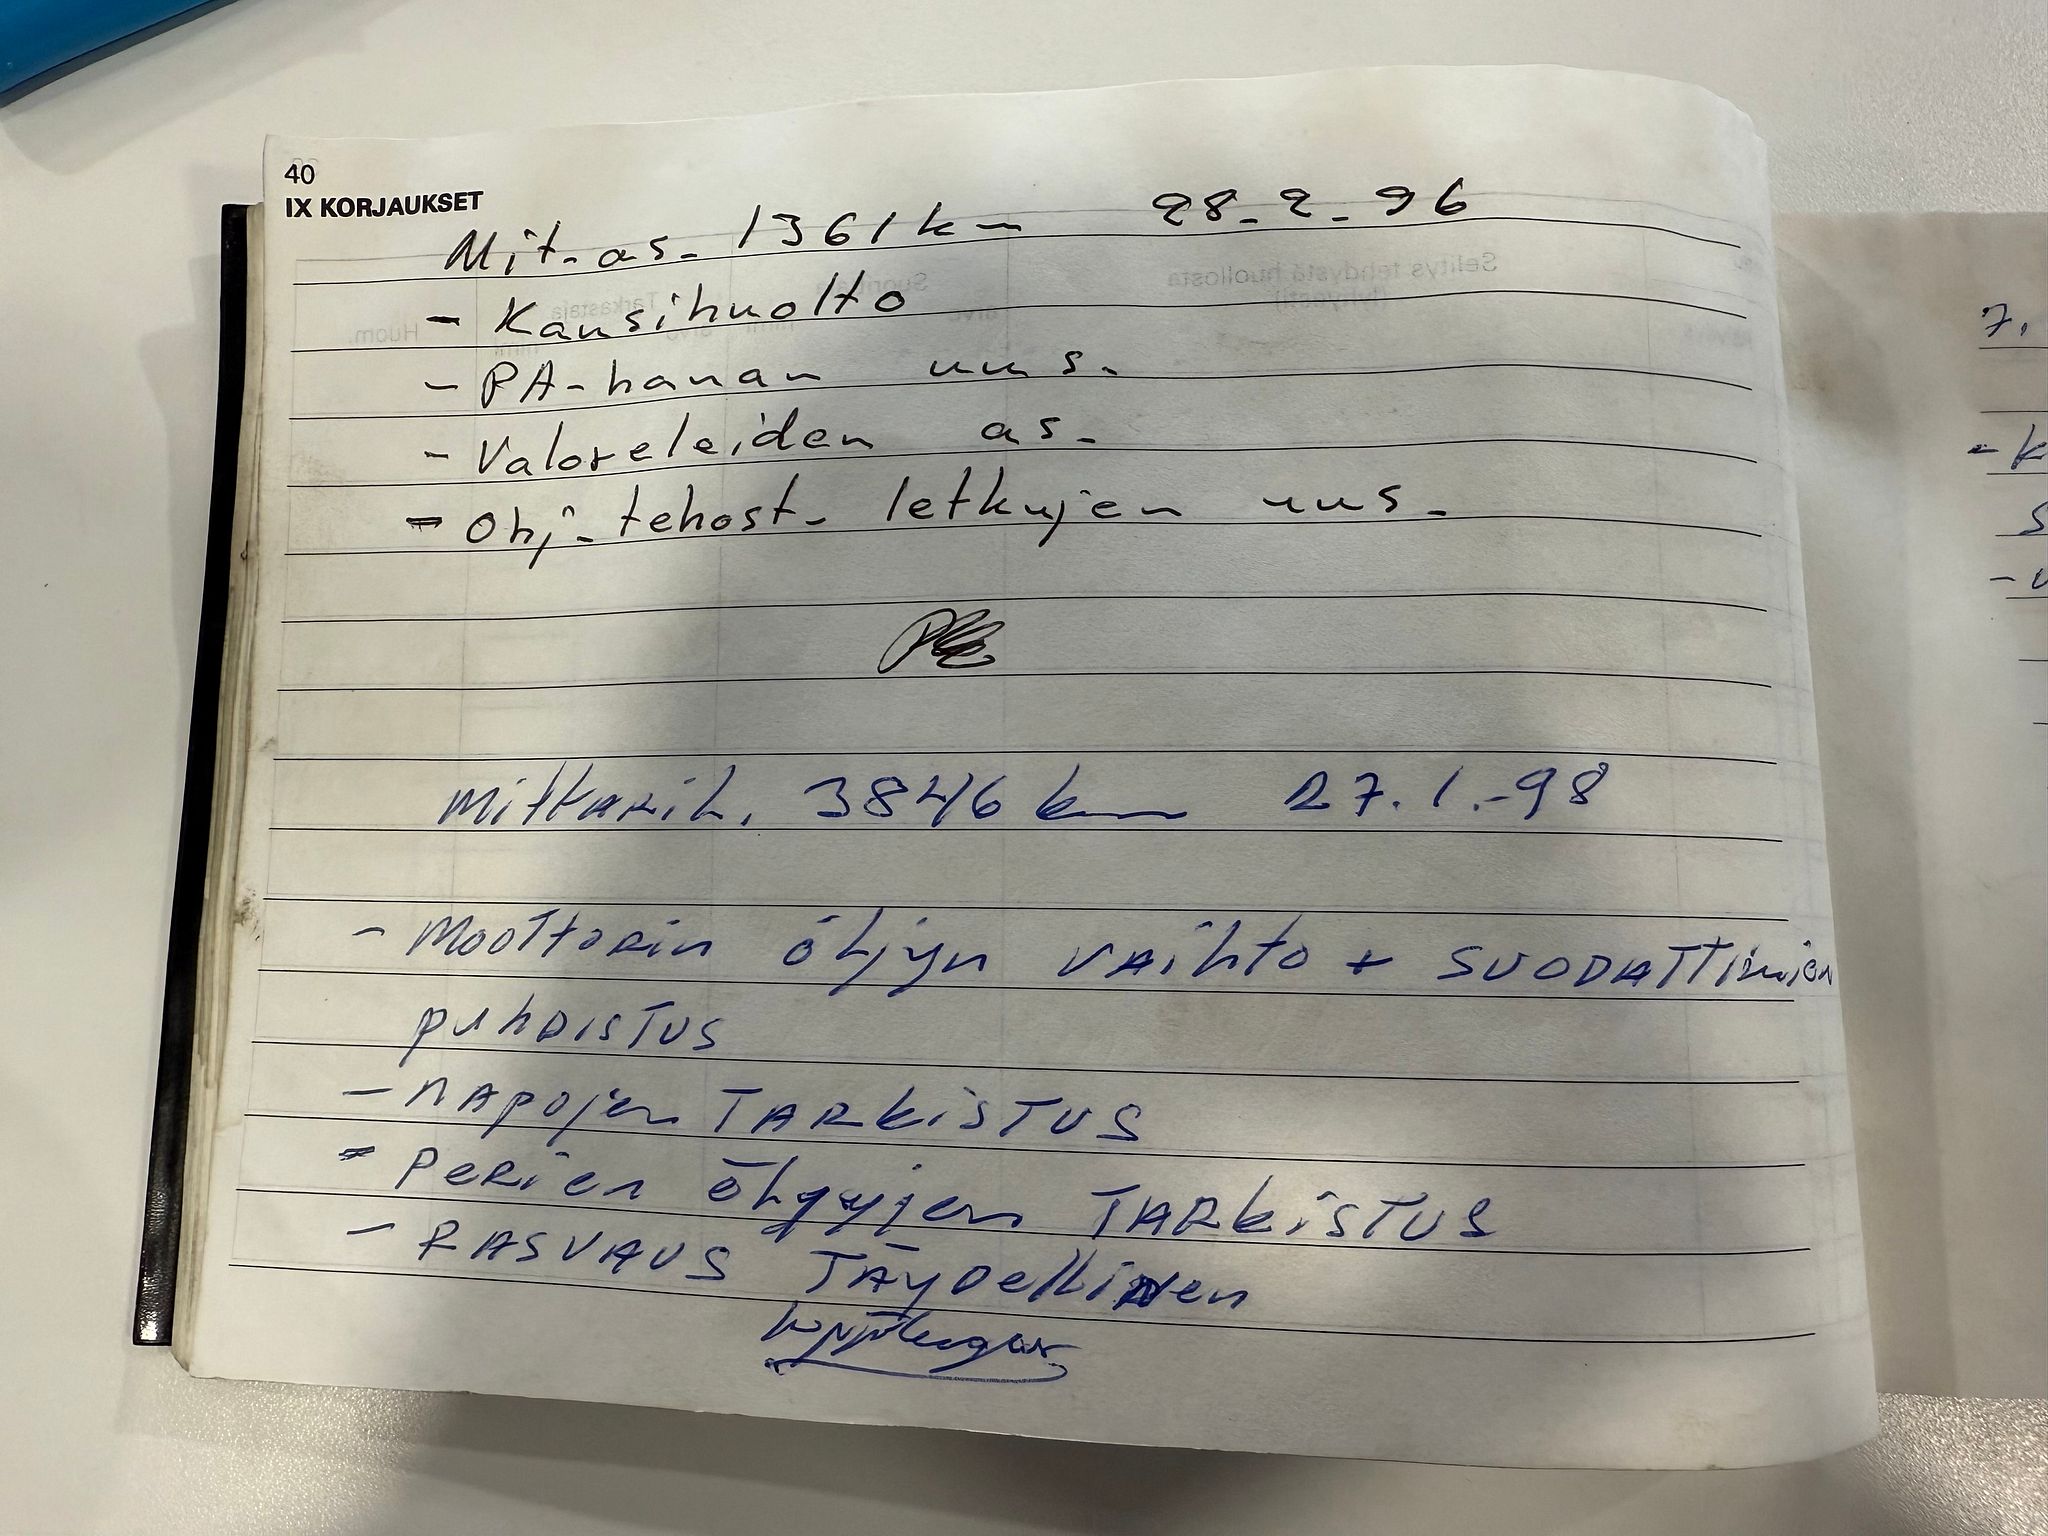 40
IX KORJAUKSET
Mit-as- 1361 km 28-2-96
- Kausihuolto
- PA-hanan uus.
- Valoreleiden as-
- Ohj- tehost- letkujen uus-
Mittaril. 3846 km 27.1.-98
- Moottorin öljyn vaihto + suodattimien
puhdistus
- napojen TARKISTUS
- Perien öljyjen TARKISTUS
- RASVAUS Täydellinen
7.
- k
s
- v